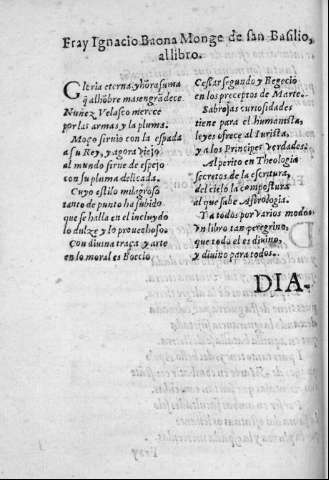 Fray Ignacio Baona Monge de san Basilio,
al libro.
Gloria eterna, y hõra suma
q̃ al hõbre mas engrãdece
Nuñez Velasco merece
por las armas y la pluma.
Moço siruio con la espada
a su Rey, y agora viejo
al mundo sirue de espejo
con su pluma delicada.
Cuyo estilo milagroso
tanto de punto ha subido
que se halla en el incluydo
lo dulze y lo prouechoso.
Con diuina traça y arte
en lo moral es Boecio
Cesar segundo y Begecio
en los preceptos de Marte.
Sabrosas curiosidades
tiene para el humanista,
leyes ofrece al Iurista,
y a los Principes verdades.
Al perito en Theologia
secretos de la escritura,
del cielo la compostura
al que sabe Astrologia.
Y a todos por varios modos
vn libro tan peregrino,
que todo el es diuino,
y diuino para todos.
DIA-